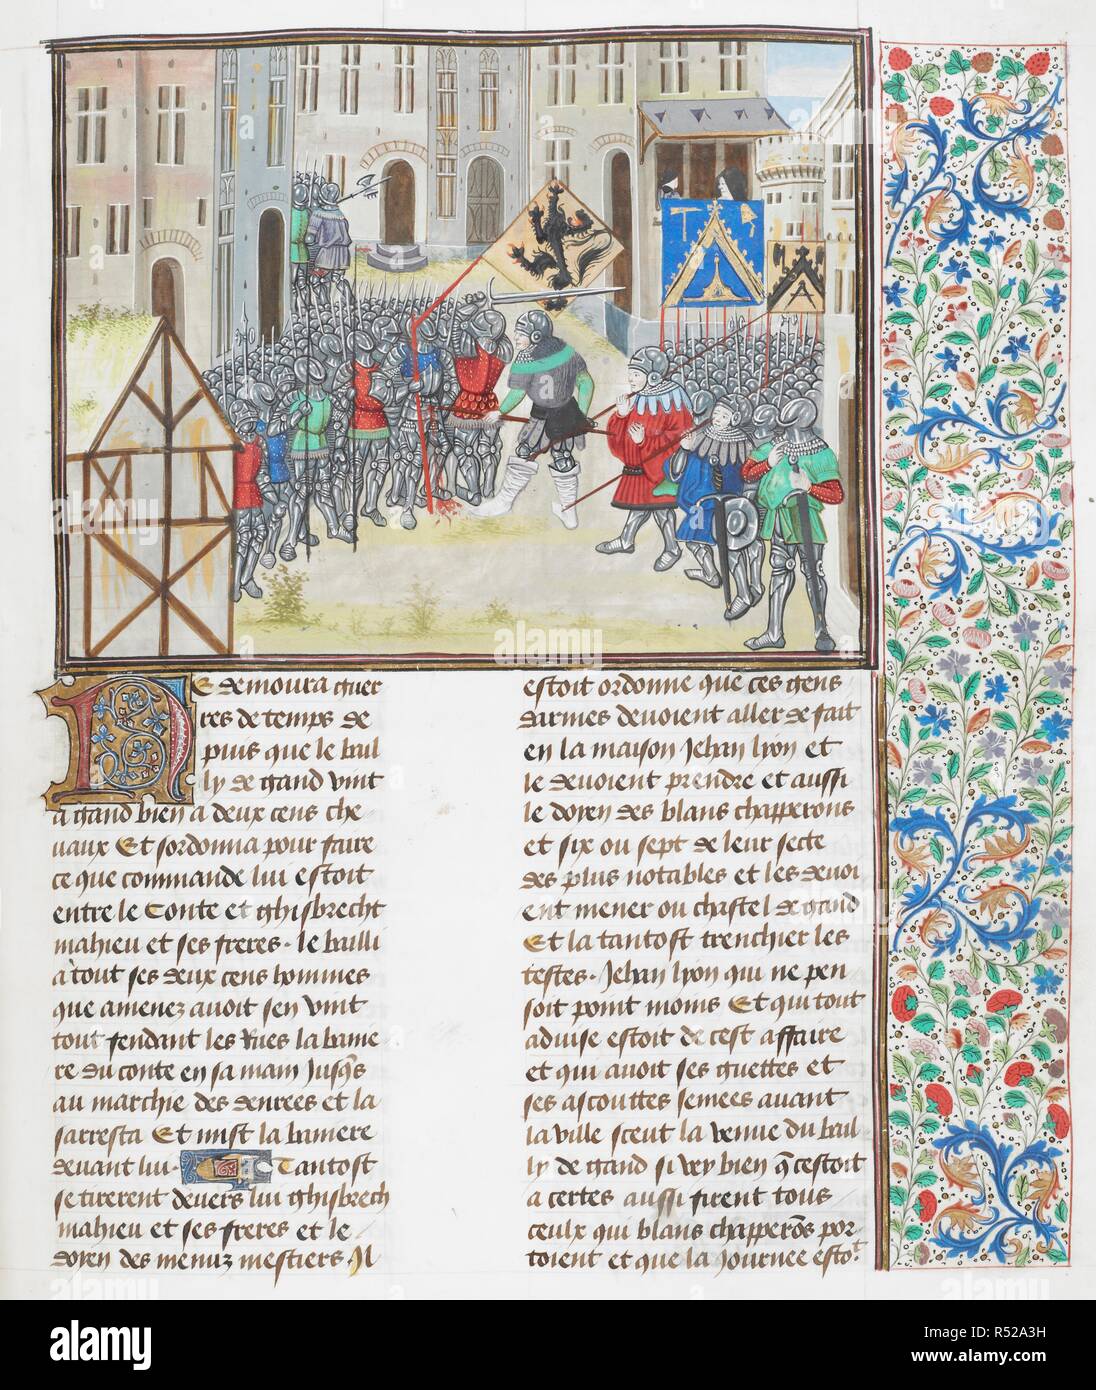 Ne demoura guer
res de temps de
puis que le bail
ly de gand vint
a gand bien a deux cens che
vaux Et sordonna pour faire
ce que commande lui estoit
entre le Conte et ghisbrecht
mahieu et ses freres. le bailli
a tout ses deux cens hommes
que amenez avoit sen vint
tout fendant les Rues la banie
re du conte en sa main jusqs
au marchie des denrees et la
sarresta Et mist la baniere
devant lui. Tantost
se tirerent devers lui ghisbrech
mahieu et ses freres et le
doyen des menuz mestiers. Il
estoit ordonne que ces gens
darmes devoient aller de fait
en la maison Jehan lyon et
le devoient prendre et aussi
le doyen des blans chapperons
et six ou sept de leur secte
des plus notables et les devoi
ent mener ou chastel de gand
Et la tantost trenchier les
testes. Jehan lyon qui ne pen
soit point moins Et qui tout
advise estoit de cest affaire
et qui avoit ses guettes et
ses ascouttes semees avant
la ville sceut la venue du bail
ly de gand si vey bien q cestoit
a certes aussi firent tous
ceulx qui blans chapperos por
toient et que la journee estoit
alamy stock photo
alamy
Image ID: R52A3H
www.alamy.com